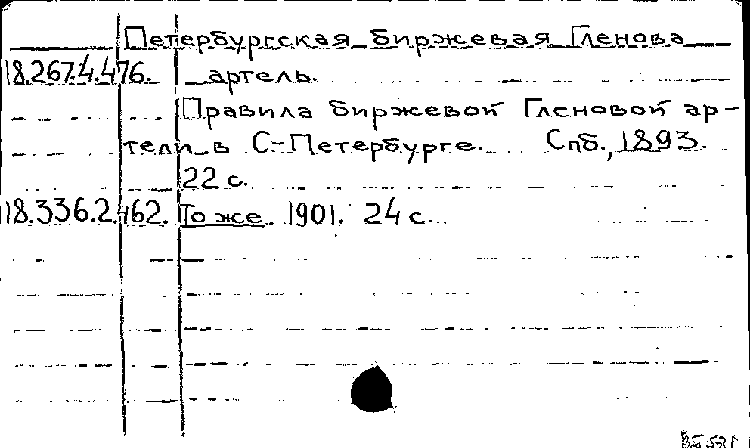 Петербургская биржевая Гленова
18.267.4.476. артель.
Правила биржевой Гленовой ар-
тели в С-Петербурге. Спб., 1893.
22 с.
18.336.2.462. То же. 1901. 24 с.